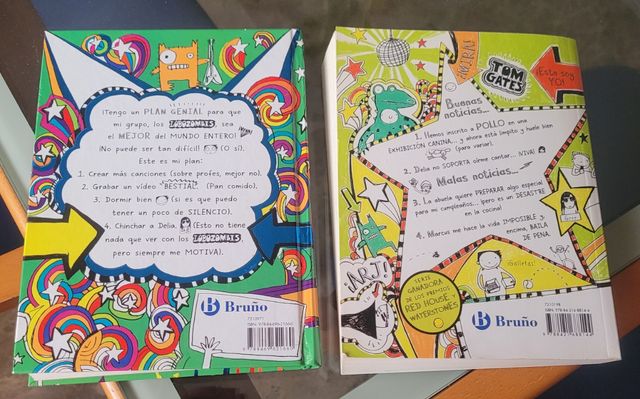 ¡Tengo un PLAN GENIAL para que
mi grupo, los LOBOZOMBIS, sea
el MEJOR del MUNDO ENTERO!
¡No puede ser tan difícil! (O sí).
Este es mi plan:
1. Crear más canciones (sobre profes, mejor no).
2. Grabar un vídeo "BESTIAL" (Pan comido).
3. Dormir bien (si es que puedo
tener un poco de SILENCIO).
4. Chinchar a Delia (Esto no tiene
nada que ver con los LOBOZOMBIS,
pero siempre me MOTIVA).
Bruño
¡MIRA!
TOM
GATES
¡Este soy
YO!
Buenas
noticias...
1. Hemos inscrito a POLLO en una
EXHIBICIÓN CANINA... y ahora está limpito y huele bien
(para variar).
2. Delia no SOPORTA oírme cantar... ¡VIVA!
Malas noticias...
3. La abuela quiere PREPARAR algo especial
para mi cumpleaños... ¡pero es un DESASTRE
en la cocina!
4. Marcus me hace la vida IMPOSIBLE y,
encima, BAILA
DE PENA.
¡Galletas!
SERIE
GANADORA
DE LOS PREMIOS
RED HOUSE Y
WATERSTONES
Bruño